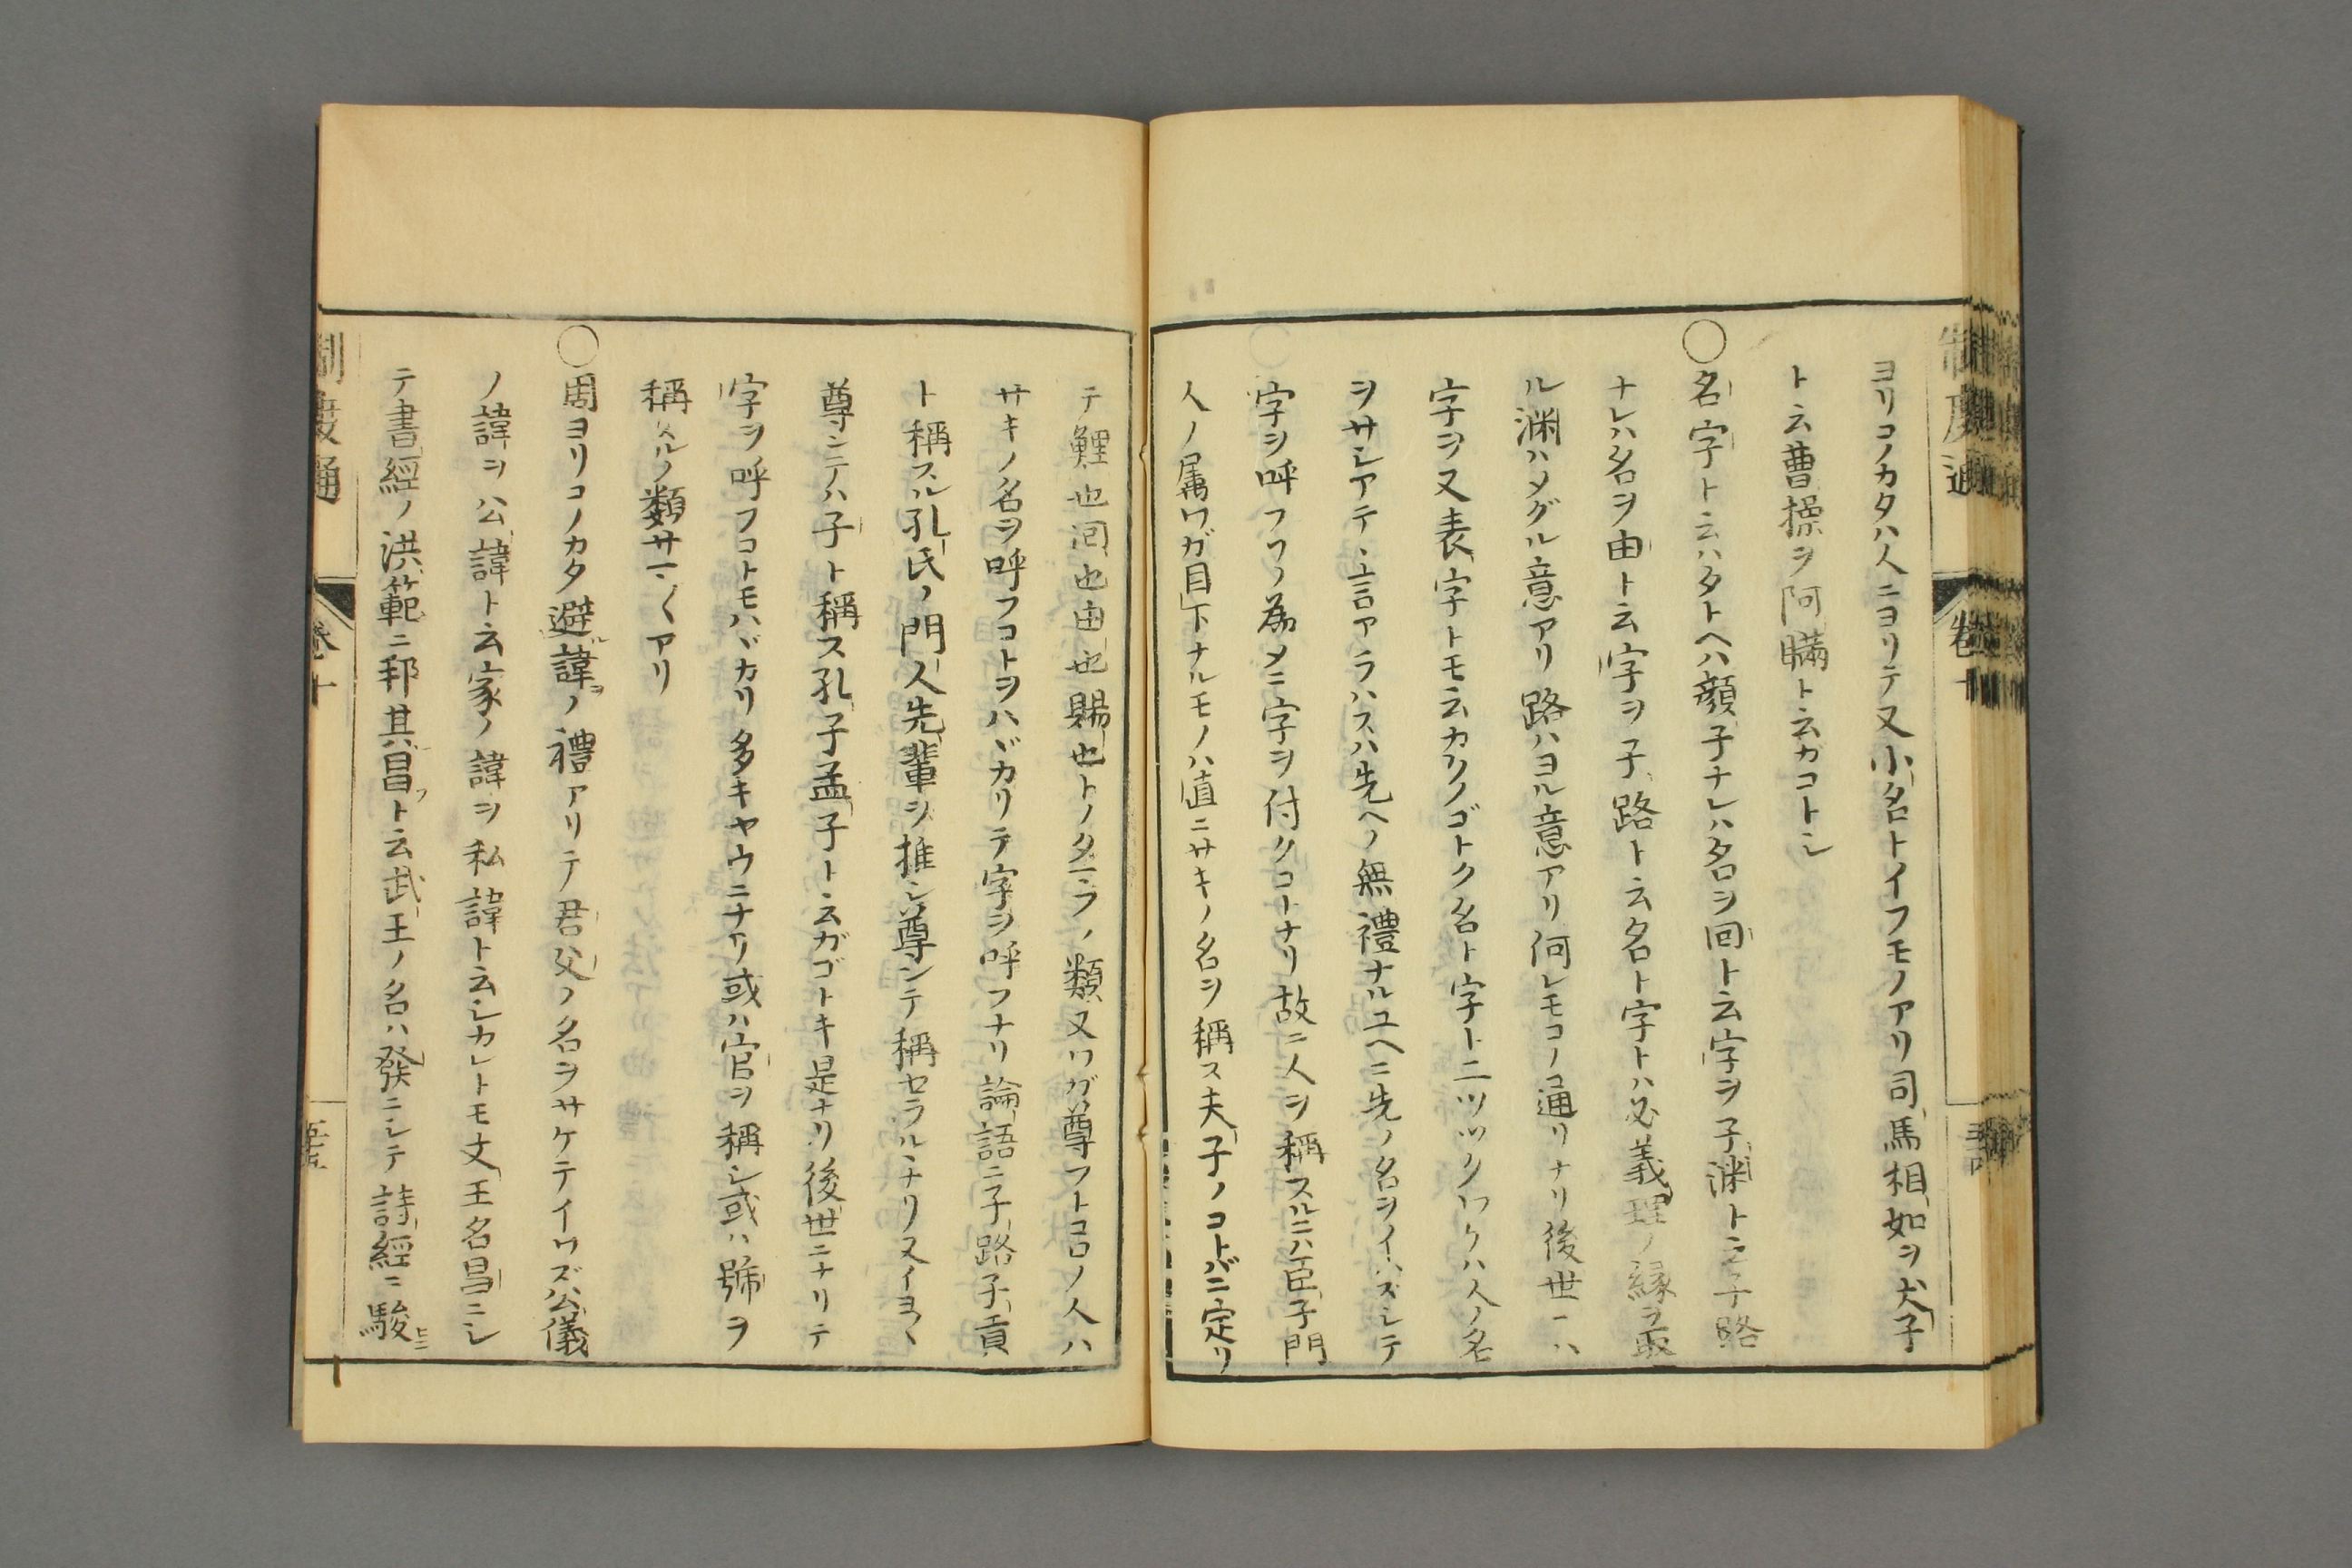 ヨリコノカタハ人ニヨリテ又小名トイフモノアリ司馬相如ヲ犬子
ト云曹操ヲ阿瞞ト云カコトシ
○名字ト云ハタトヘハ顔子ナレハ名ヲ回ト云字ヲ子淵ト云子路
ナレハ名ヲ由ト云字ヲ子路ト云名ト字トハ必義理ノ縁ヲ取
ル渊ハメグル意アリ路ハヨル意アリ何レモコノ通リナリ後世ニハ
字ヲ又表字トモ云カクノゴトク名ト字ト二ツツクワケハ人ノ名
ヲサシアテ言アラハスハ先ヘノ無禮ナルユヘニ先ノ名ヲイハズシテ
字ヲ呼フワノ為メニ字ヲ付クコトナリ故ニ人ヲ稱スルニハ臣子門
人ノ属ワガ目下ナルモノハ直ニサキノ名ヲ稱ス夫子ノコトバニ定リ
テ鯉也回也由也賜也トノタマフノ類又ワガ尊フトコロノ人ハ
サキノ名ヲ呼フコトヲハヾカリテ字ヲ呼フナリ論語ニ子路子貢
ト稱スル孔氏ノ門人先輩ヲ推シ尊ンテ稱セラルヽナリ又イヨヽ
尊ンテハ子ト稱ス孔子孟子ト云ガゴトキ是ナリ後世ニナリテ
字ヲ呼フコトモハヾカリ多キヤウニナリ或ハ官ヲ稱シ或ハ號ヲ
稱スルノ類サマ〱アリ
○周ヨリコノカタ避諱ノ禮アリテ君父ノ名ヲサケテイワズ公儀
ノ諱ヲ公諱ト云家ノ諱ヲ私諱ト云シカレトモ文王名昌ニシ
テ書經ノ洪範ニ邦其昌フト云武王ノ名ハ發ニシテ詩經ニ駿
制度通
卷十